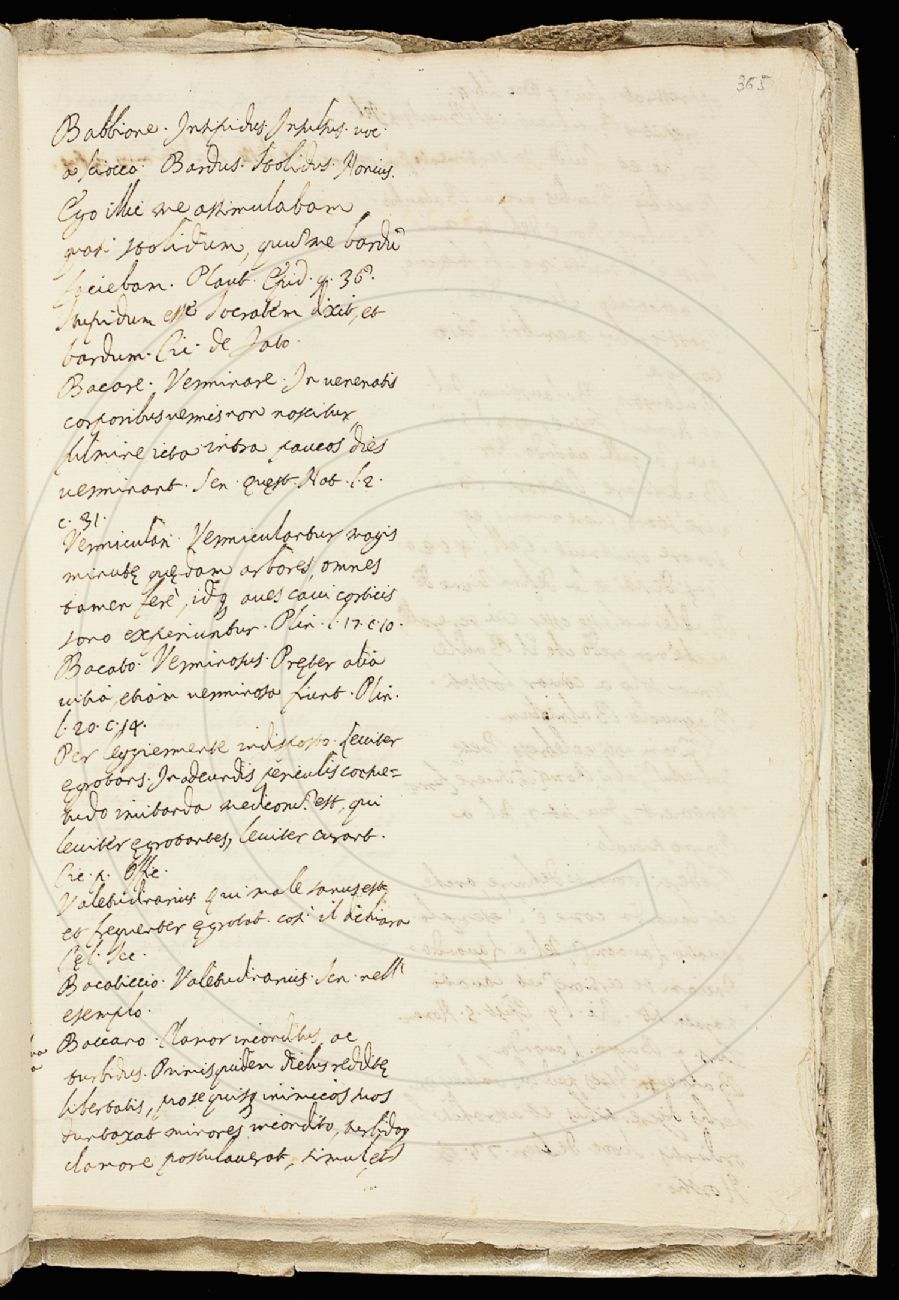 365
Babbione. Insipidus. Insulsus. voc.
a sciocco. Bardus. Stolidus. Nonius.
Ego illic me assimulabam
quasi stolidum, quum me bardū
faciebam. Plaut. Epid. 36.
Stupidum esse Socratem dixit, et
bardum. Cic. de Fato.
Bacare. Verminare. In venenatis
corporibus vermis non nascitur,
fulmine icta intra paucos dies
verminant. Sen. quęst. Nat. l. 2.
c. 31.
Vermiculari. Vermiculantur magis
minusę quędam arbores, omnes
tamen ferè, idq aves cavi corticis
sono experiuntur. Plin. l. 17. c. 10.
Bacato. Verminosus. Pręter alia
vitia, etiam verminosa fiunt. Plin.
l. 20. c. 14.
Per leggiermente indisposto. Leviter
ęgrotans. In adeundis periculis consue=
tudo imitanda medicorū est, qui
leviter ęgrotantes, leviter curant.
Cic. p. Offic.
Valetudinarius qui male sanus est,
et frequenter ęgrotat. così il dichiara
Cęl. Sec.
Bacaticcio. Valetudinarius. Sen. nell'
esempio.
Baccano. Clamor inconditus, ac
turbidus. Primis quidem diebus redditę
libertatis, pro se quisq inimicos suos
dumtaxat minores incondito, turbidoq
clamore postulaverat, simul, et